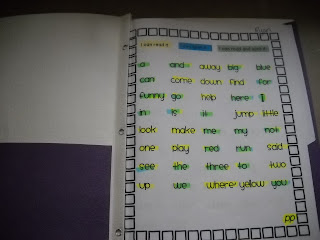 I can read it
a and away big blue
can come down find for
funny go help here I
in is it jump little
look make me my not
one play red run said
see the three to two
up we where yellow you
pp